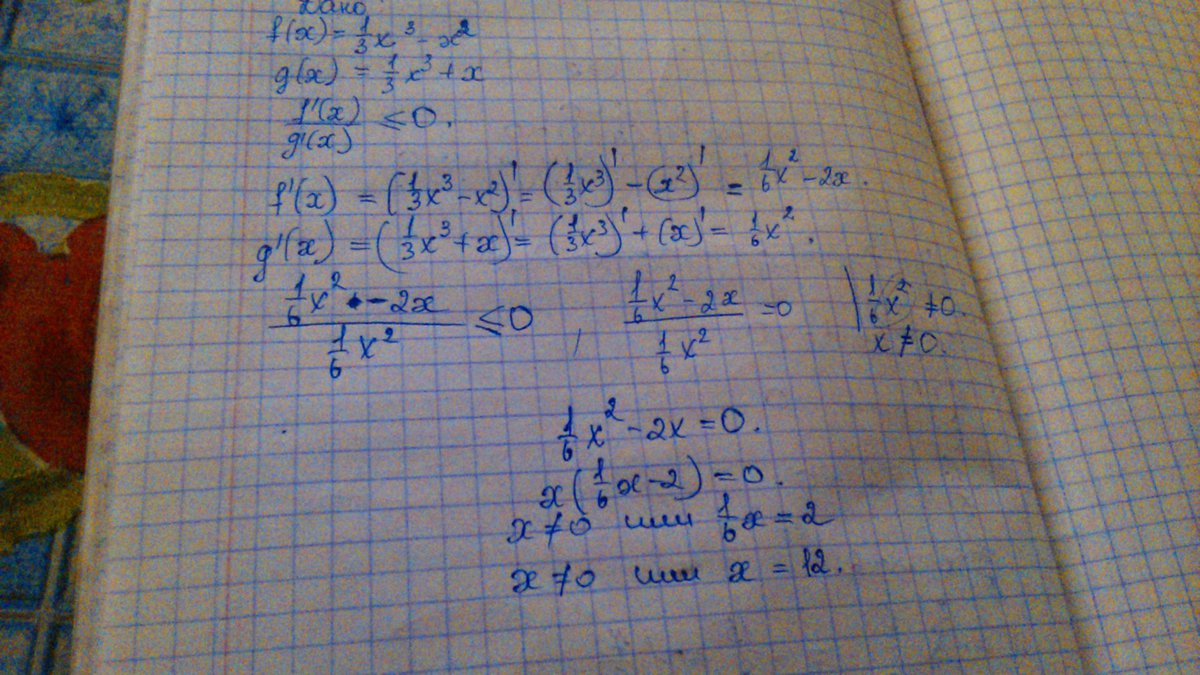 Дано
f(x) = 1/3 x³ - x²
g(x) = 1/3 x³ + x
f'(x)/g'(x) ≤ 0.
f'(x) = (1/3 x³ - x²)' = (1/3 x³)' - (x²)' = 1/6 x² - 2x.
g'(x) = (1/3 x³ + x)' = (1/3 x³)' + (x)' = 1/6 x².
(1/6 x² - 2x)/(1/6 x²) ≤ 0, (1/6 x² - 2x)/(1/6 x²) = 0 | 1/6 x² ≠ 0.
x ≠ 0.
1/6 x² - 2x = 0.
x(1/6 x - 2) = 0.
x ≠ 0 или 1/6 x = 2
x ≠ 0 или x = 12.